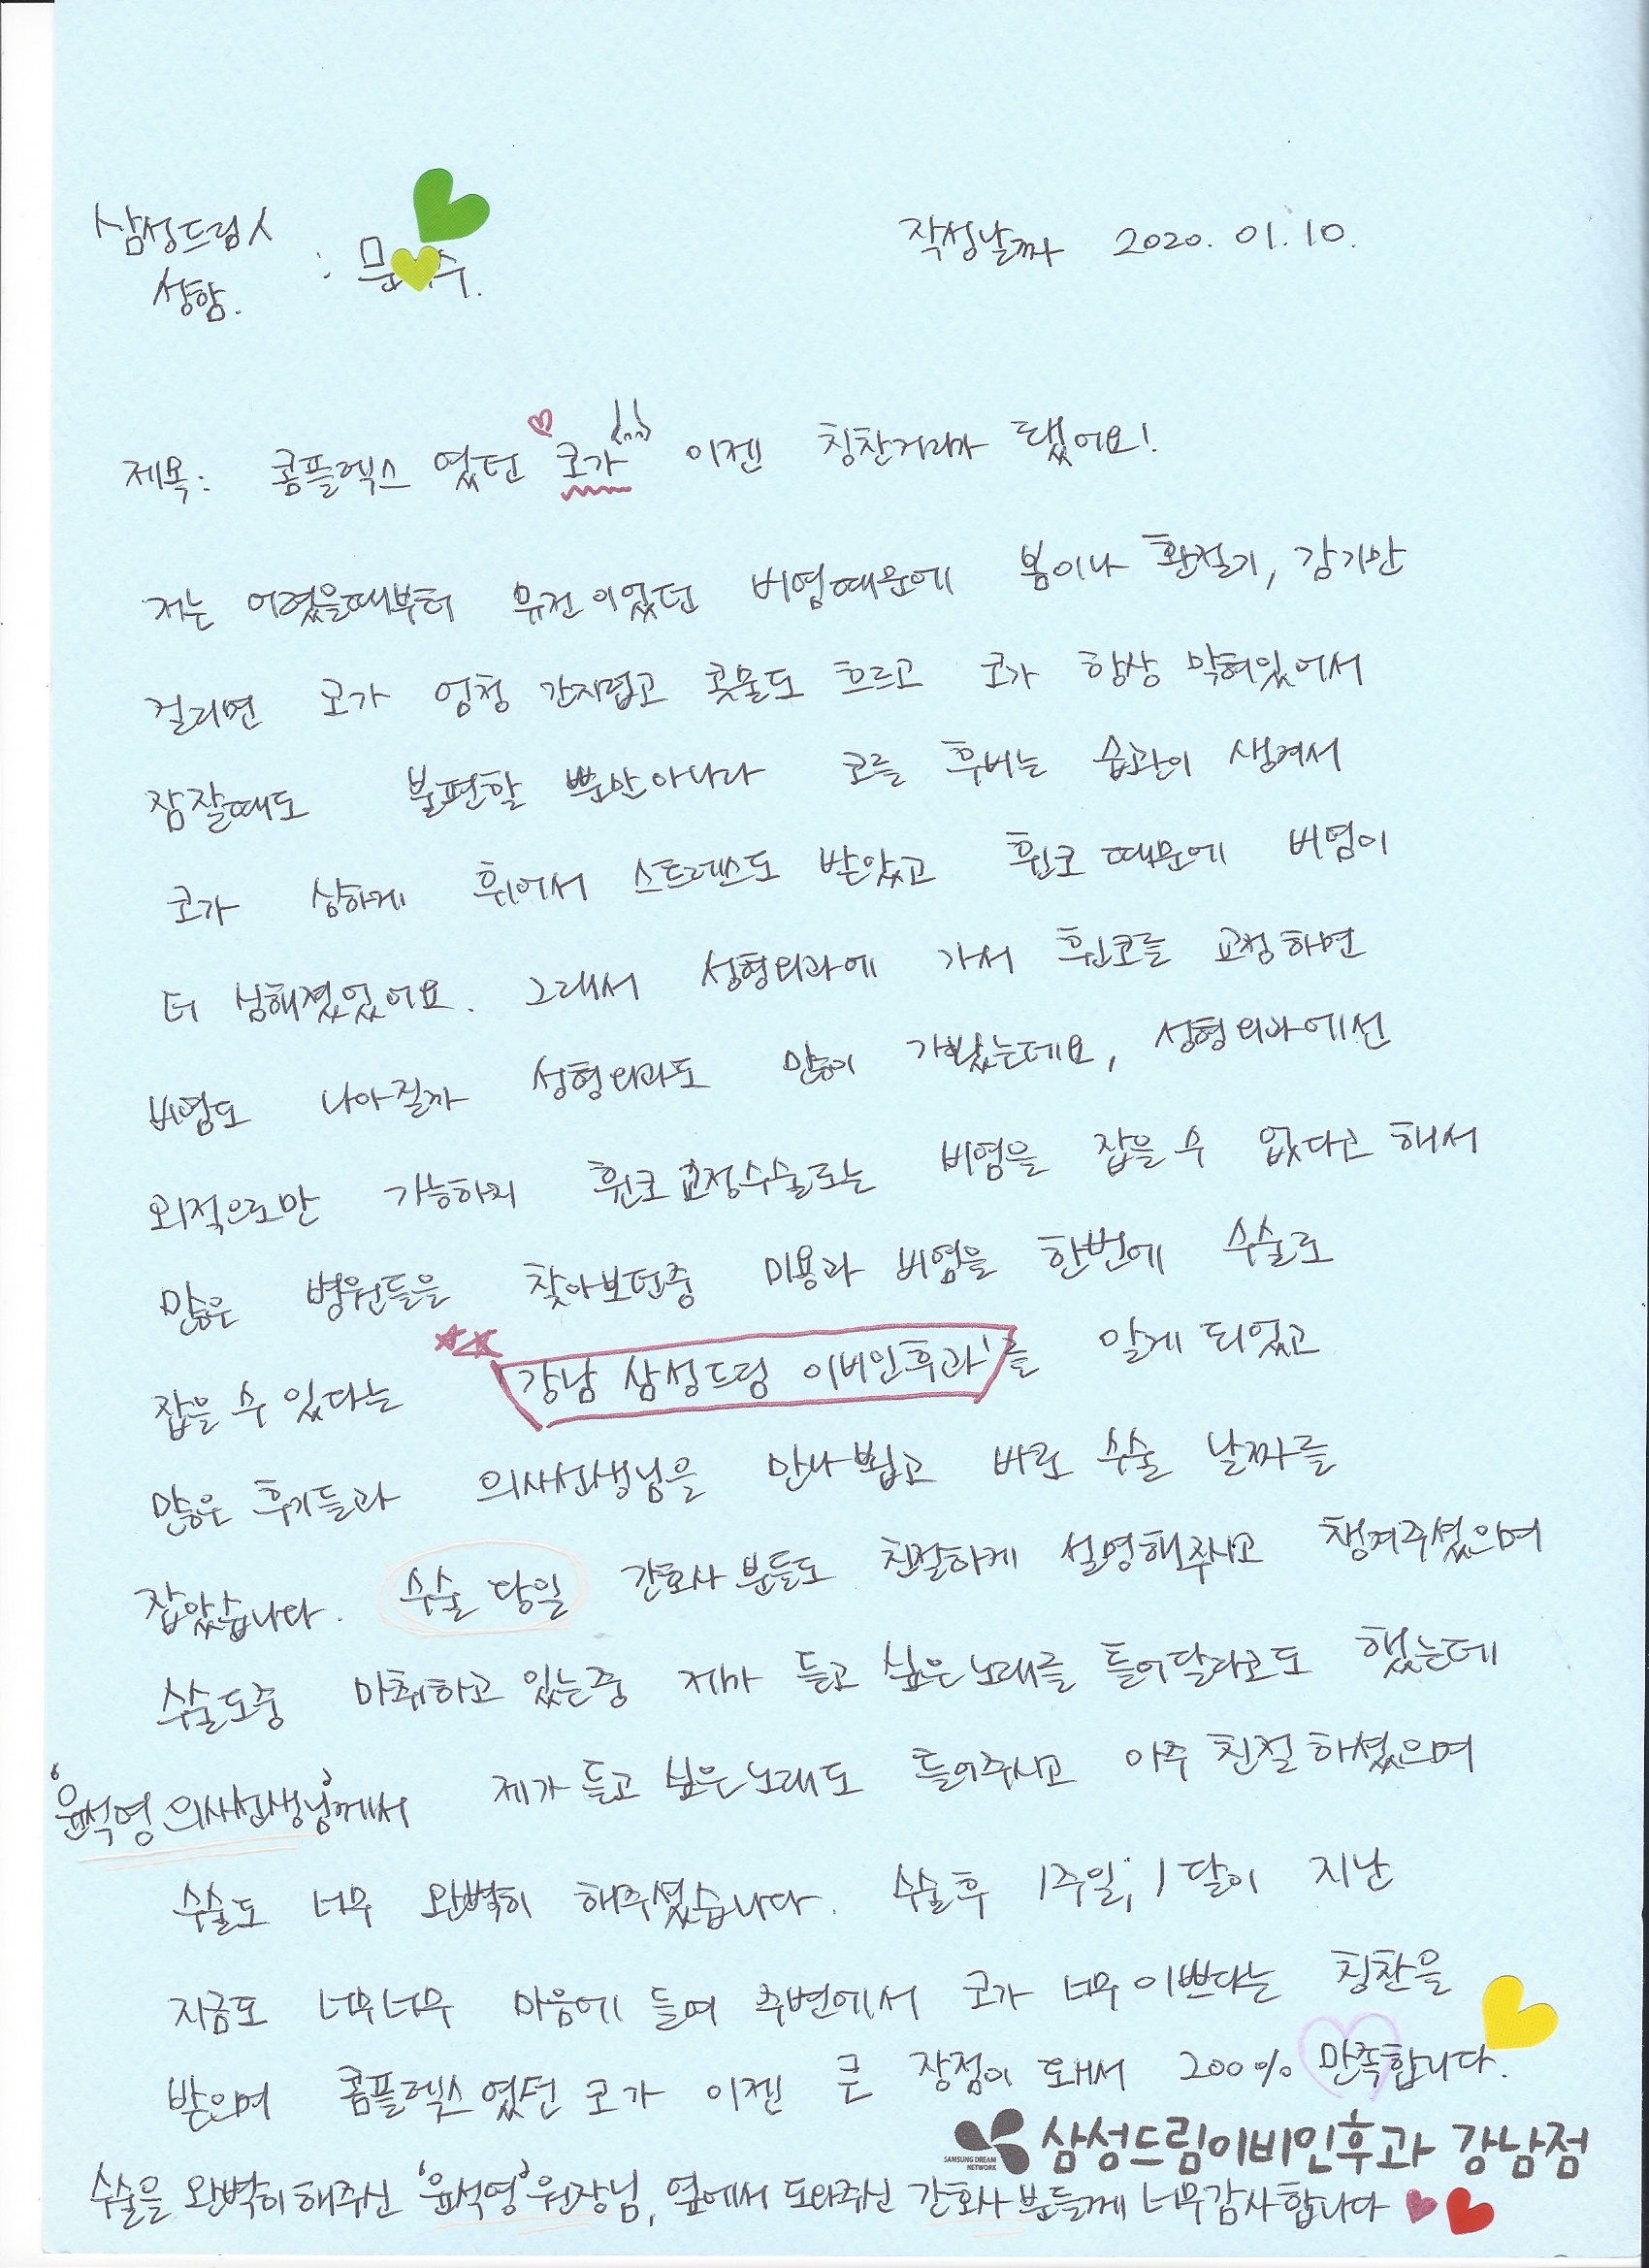 삼성드림人
성함. : 문 수.
작성날짜 2020. 01. 10.
제목: 콤플렉스 였던 코가 이젠 칭찬거리가 됐어요!
저는 어렸을때부터 유전이었던 비염때문에 봄이나 환절기, 감기만
걸리면 코가 엄청 간지럽고 콧물도 흐르고 코가 항상 막혀있어서
잠잘때도 불편할 뿐만아니라 코를 후비는 습관이 생겨서
코가 심하게 휘어서 스트레스도 받았고 휜코 때문에 비염이
더 심해졌었어요. 그래서 성형외과에 가서 휜코를 교정하면
비염도 나아질까 성형외과도 많이 가봤는데요, 성형외과에선
외적으로만 가능하지 휜코교정수술로는 비염을 잡을 수 없다고 해서
많은 병원들을 찾아보던중 미용과 비염을 한번에 수술로
잡을 수 있다는 '강남 삼성드림 이비인후과'를 알게 되었고
많은 후기들과 의사선생님을 만나뵙고 바로 수술 날짜를
잡았습니다. 수술 당일 간호사 분들도 친절하게 설명해주시고 챙겨주셨으며
수술도중 마취하고 있는중 제가 듣고 싶은노래를 틀어달라고도 했는데
'윤석영 의사선생님'께서 제가 듣고 싶은노래도 틀어주시고 아주 친절하셨으며
수술도 너무 완벽히 해주셨습니다. 수술후 1주일, 1달이 지난
지금도 너무너무 마음에 들며 주변에서 코가 너무 이쁘다는 칭찬을
받으며 콤플렉스였던 코가 이젠 큰 장점이 돼서 200% 만족합니다.
SAMSUNG DREAM NETWORK 삼성드림이비인후과 강남점
수술을 완벽히 해주신 '윤석영' 원장님, 옆에서 도와주신 간호사 분들께 너무감사합니다